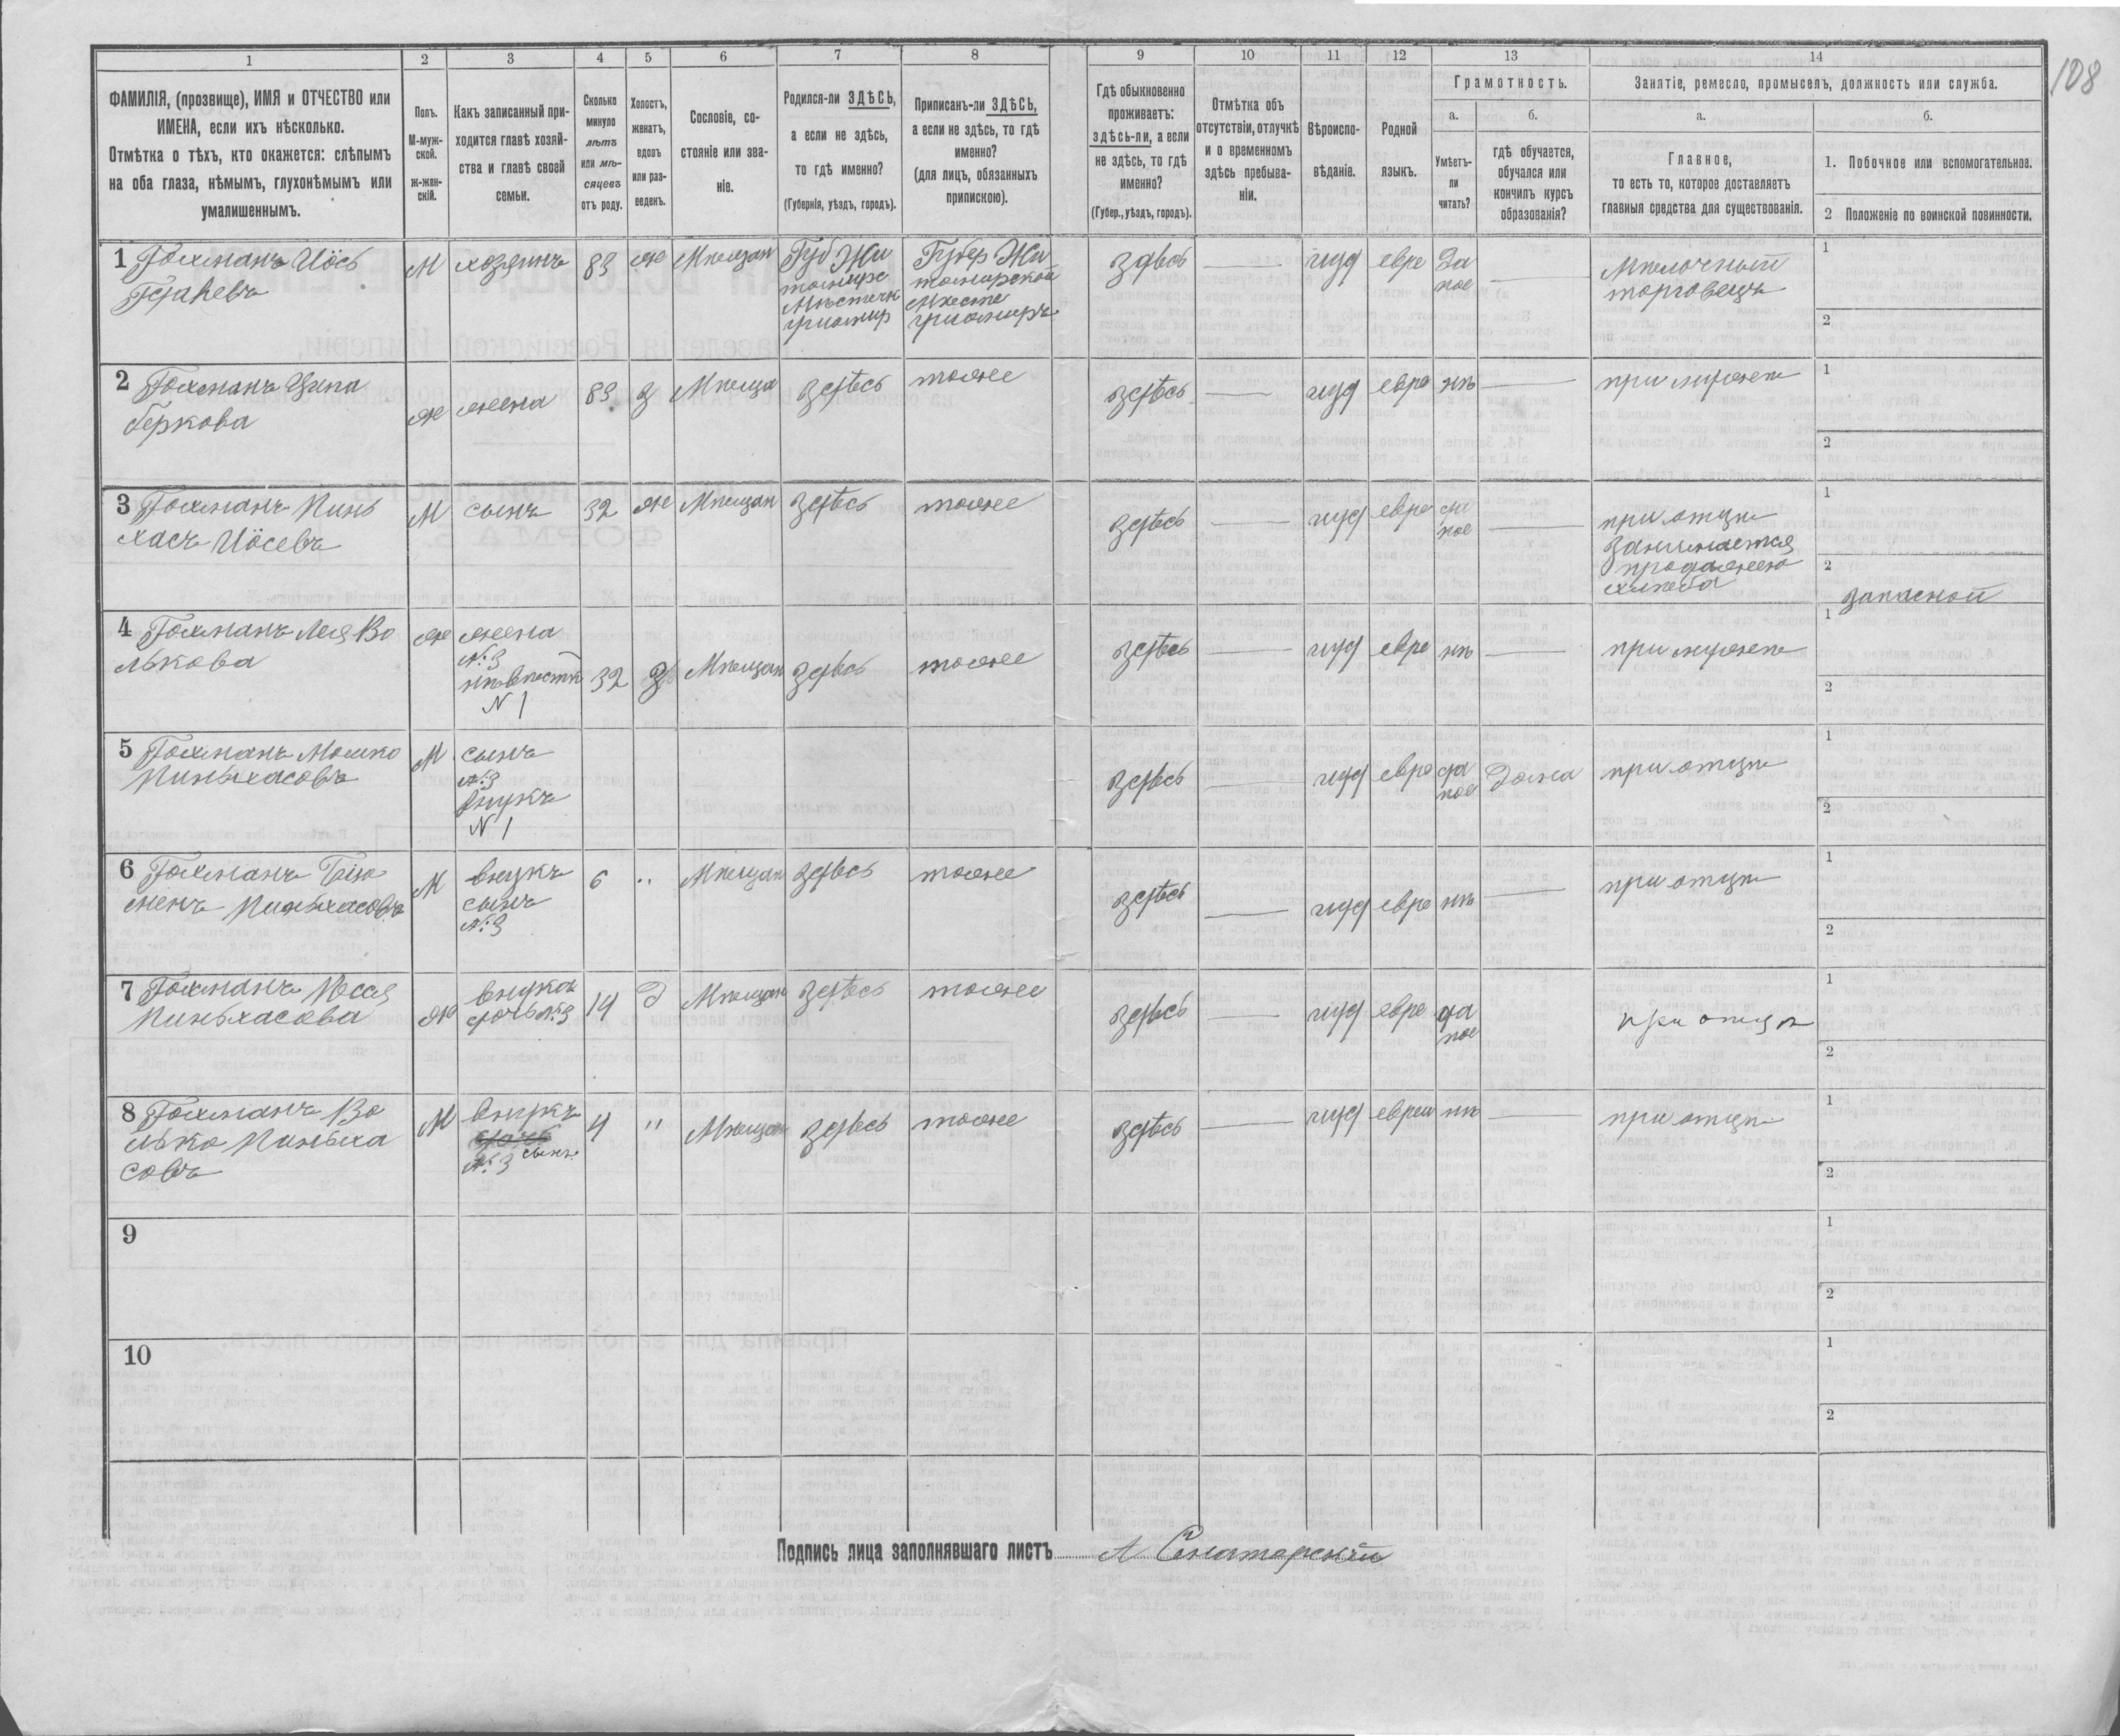 108
1 2 3 4 5 6 7 8 9 10 11 12 13 14
ФАМИЛІЯ, (прозвище), ИМЯ и ОТЧЕСТВО или
ИМЕНА, если ихъ нѣсколько.
Отмѣтка о тѣхъ, кто окажется: слѣпымъ
на оба глаза, нѣмымъ, глухонѣмымъ или
умалишеннымъ.
Полъ.
М-муж-
ской.
Ж-жен-
скій.
Какъ записанный при-
ходится главѣ хозяй-
ства и главѣ своей
семьи.
Сколько
минуло
лѣтъ
или мѣ-
сяцевъ
отъ роду.
Холостъ,
женатъ,
вдовъ
или раз-
веденъ.
Сословіе, со-
стояніе или зва-
ніе.
Родился-ли ЗДѢСЬ,
а если не здѣсь,
то гдѣ именно?
(Губернія, уѣздъ, городъ).
Приписанъ-ли ЗДѢСЬ,
а если не здѣсь, то гдѣ
именно?
(для лицъ, обязанныхъ
припискою).
Гдѣ обыкновенно
проживаетъ:
здѣсь-ли, а если
не здѣсь, то гдѣ
именно?
(Губер., уѣздъ, городъ).
Отмѣтка объ
отсутствіи, отлучкѣ
и о временномъ
здѣсь пребыва-
ніи.
Вѣроиспо-
вѣданіе.
Родной
языкъ.
Грамотность.
а.
Умѣетъ-
ли
читать?
б.
гдѣ обучается,
обучался или
кончилъ курсъ
образованія?
Занятіе, ремесло, промыселъ, должность или служба.
а.
Главное,
то есть то, которое доставляетъ
главныя средства для существованія.
б.
1. Побочное или вспомогательное.
2 Положеніе по воинской повинности.
1 Гохманъ Иось
М хозяинъ 83 ж Мѣщан
Губ Жи
томирс
Мѣстечк
Губер Жи
томирской
Мѣсте
здѣсь иуд евре
Да
Мѣлочный
торговецъ
1
2
2 Гохманъ Ципа
беркова
ж жена 83 З Мѣща здѣсь тоже
здѣсь иуд евре нѣ при мужѣ
1
2
3 Гохманъ Пинь
хасъ Иосевъ
М сынъ 32 ж Мѣщан здѣсь тоже
здѣсь иуд евре
при отцѣ
занимается
продажею
хлѣба
1
2
запасной
4 Гохманъ Лея Во
лькова
ж жена
№ 3
невѣстк
N 1
32 З Мѣщан здѣсь тоже
здѣсь иуд евре нѣ при мужѣ
1
2
5 Гохманъ Мошко
Пиньхасовъ
М сынъ
№ 3
внукъ
N 1
здѣсь иуд евре да
дома при отцѣ
1
2
6 Гохманъ
Пиньхасовъ
М внукъ
сынъ
№ 3
6 " Мѣщан здѣсь тоже
здѣсь иуд евре нѣ при отцѣ
1
2
7 Гохманъ Песся
Пиньхасова
ж внука
дочь № 3
14 Д Мѣщан здѣсь тоже
здѣсь иуд евре да
при отцѣ
1
2
8 Гохманъ Во
лько Пиньха
совъ
М внукъ
сынъ
№ 3
4 " Мѣщан здѣсь тоже
здѣсь иуд евреи нѣ при отцѣ
1
2
9
1
2
10
1
2
Подпись лица заполнявшаго листъ А Сенаторскій